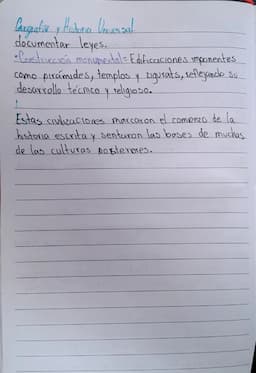 Geografía y Historia Universal
documentar leyes.
-Construcción monumental= Edificaciones imponentes
como pirámides, templos y zigurats, reflejando su
desarrollo técnico y religioso.
Estas civilizaciones marcaron el comienzo de la
historia escrita y sentaron las bases de muchas
de las culturas posteriores.